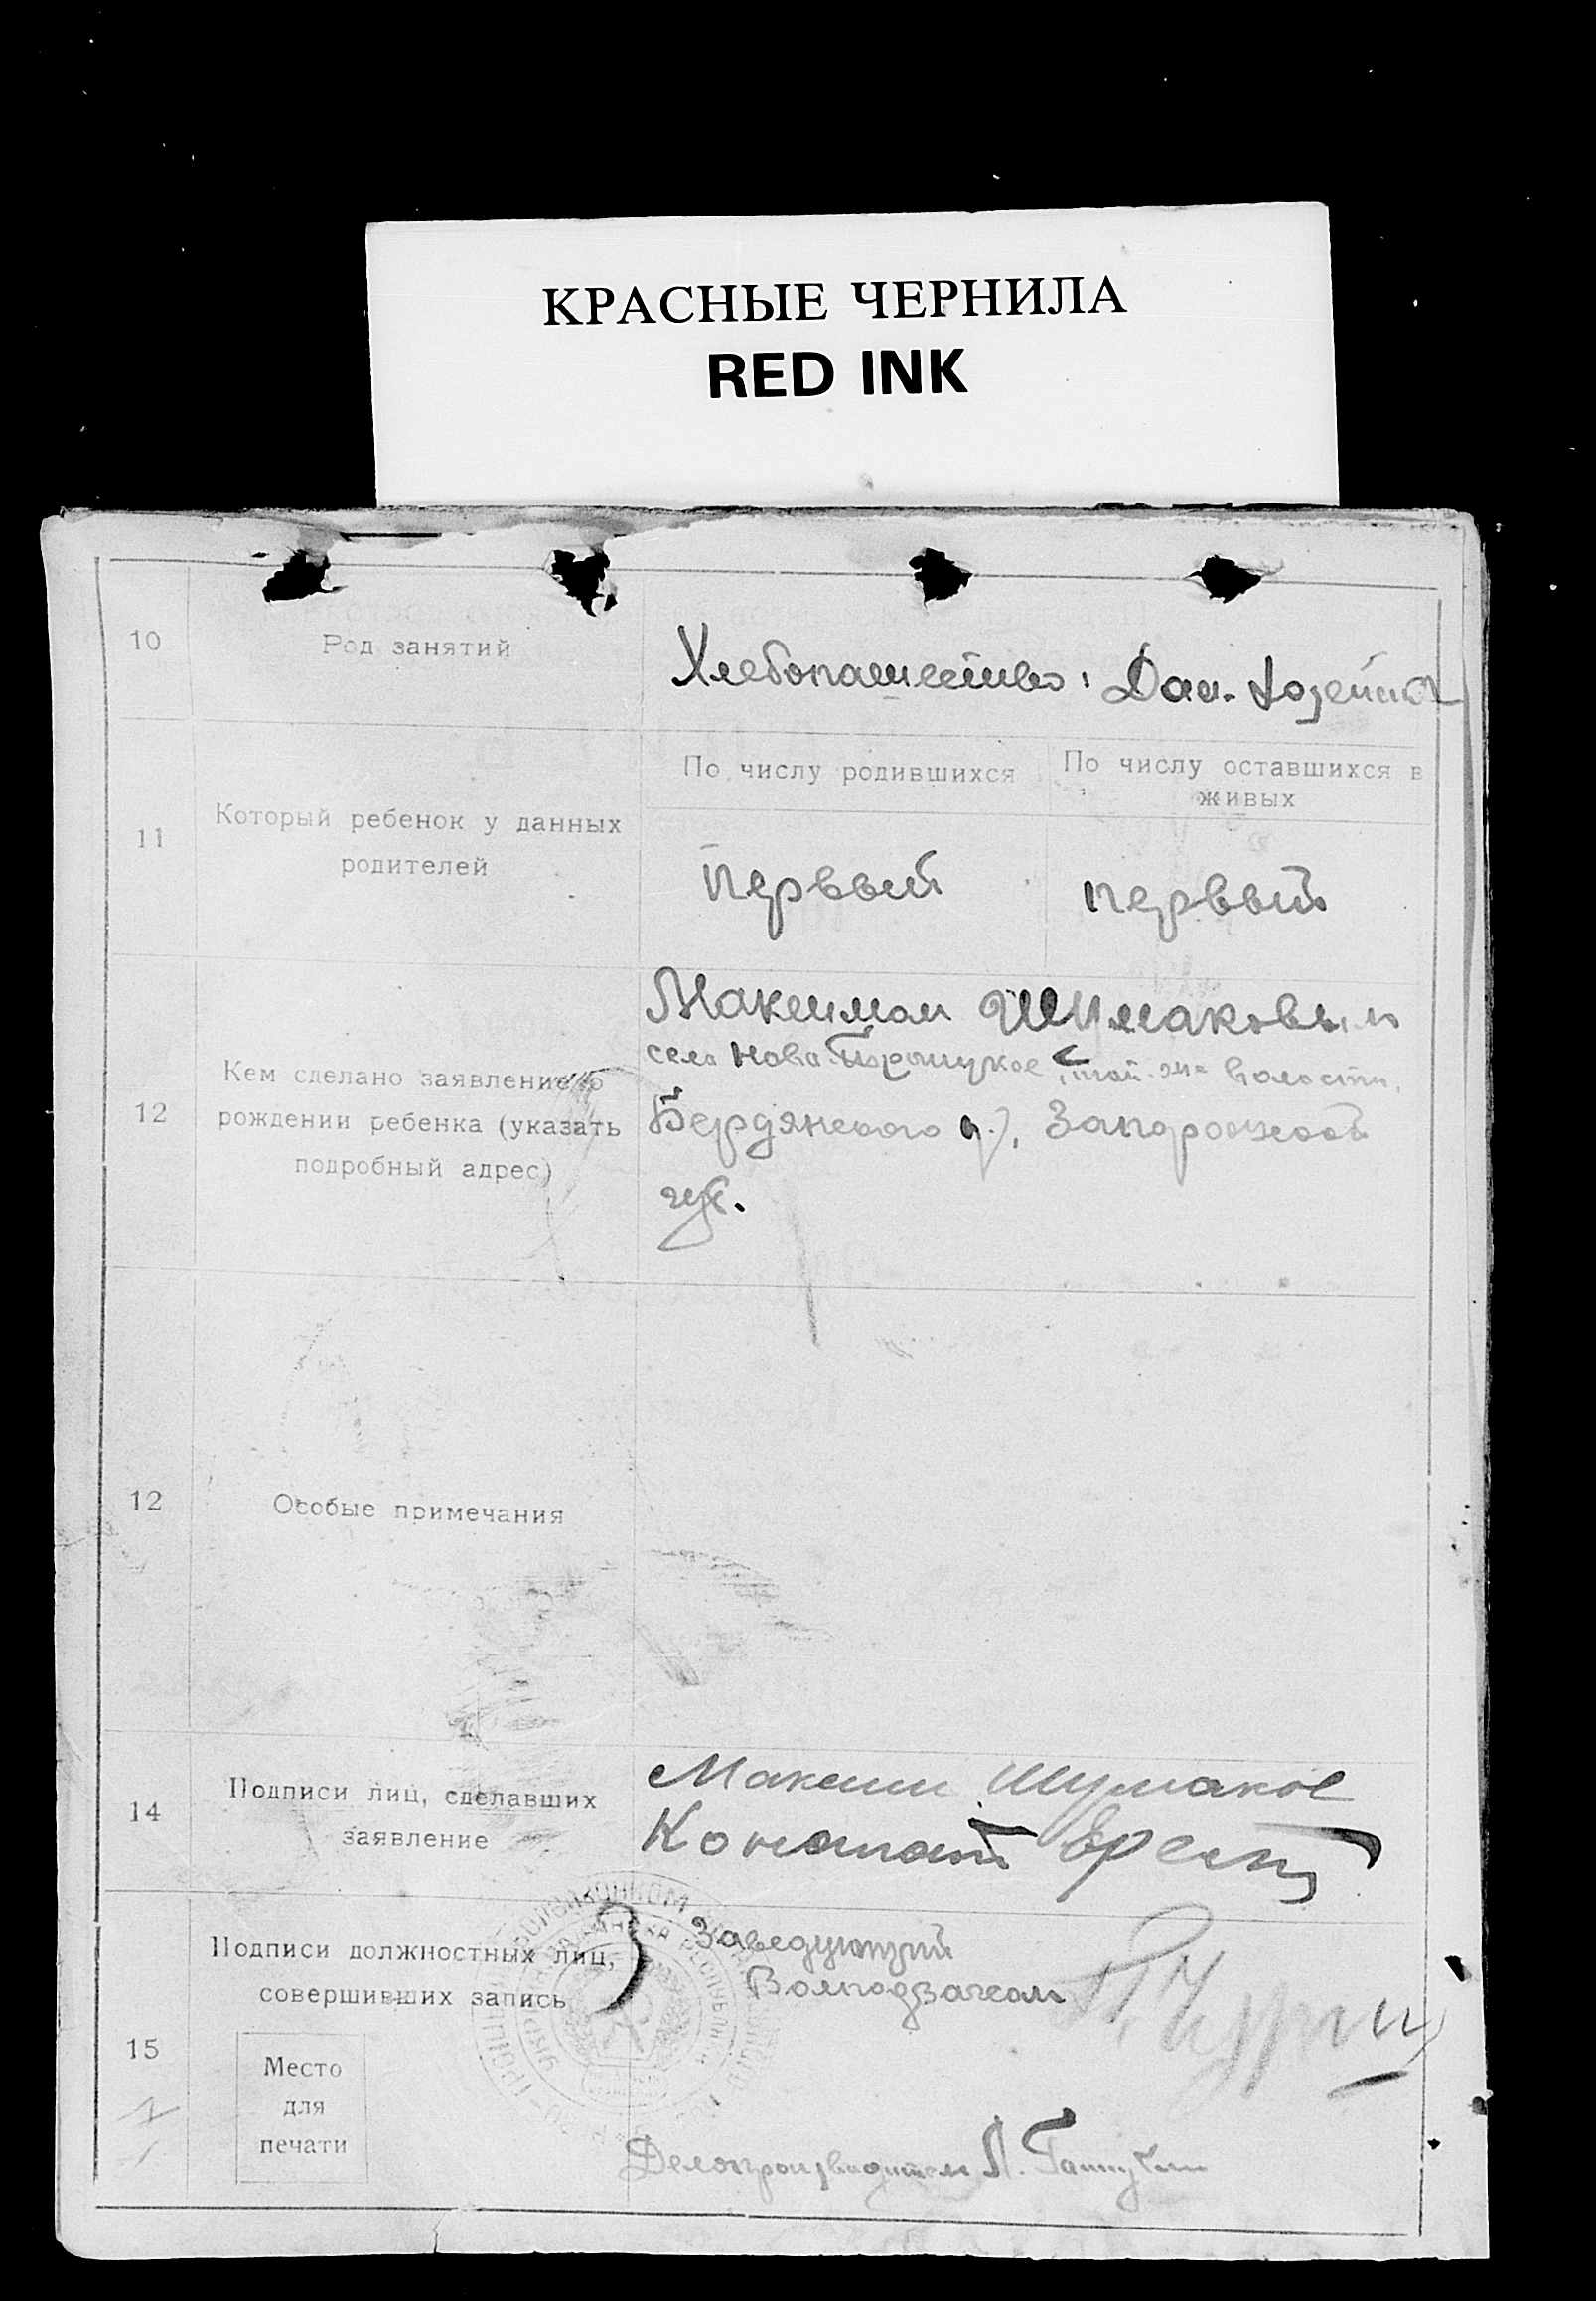 КРАСНЫЕ ЧЕРНИЛА
RED INK
10
Род занятий
Хлебопашество; Дом. хозяйка
11
Который ребенок у данных
родителей
По числу родившихся
По числу оставшихся в
живых
первый
первый
12
Кем сделано заявление о
рождении ребенка (указать
подробный адрес)
Максимом Шумаковым
села Ново волости,
Бердянского у., Запорожской
губ.
12
Особые примечания
14
Подписи лиц, сделавших
заявление
Максим Шумаков
15
Подписи должностных лиц,
совершивших запись
Место
для
печати
Заведующий
Делопроизводитель